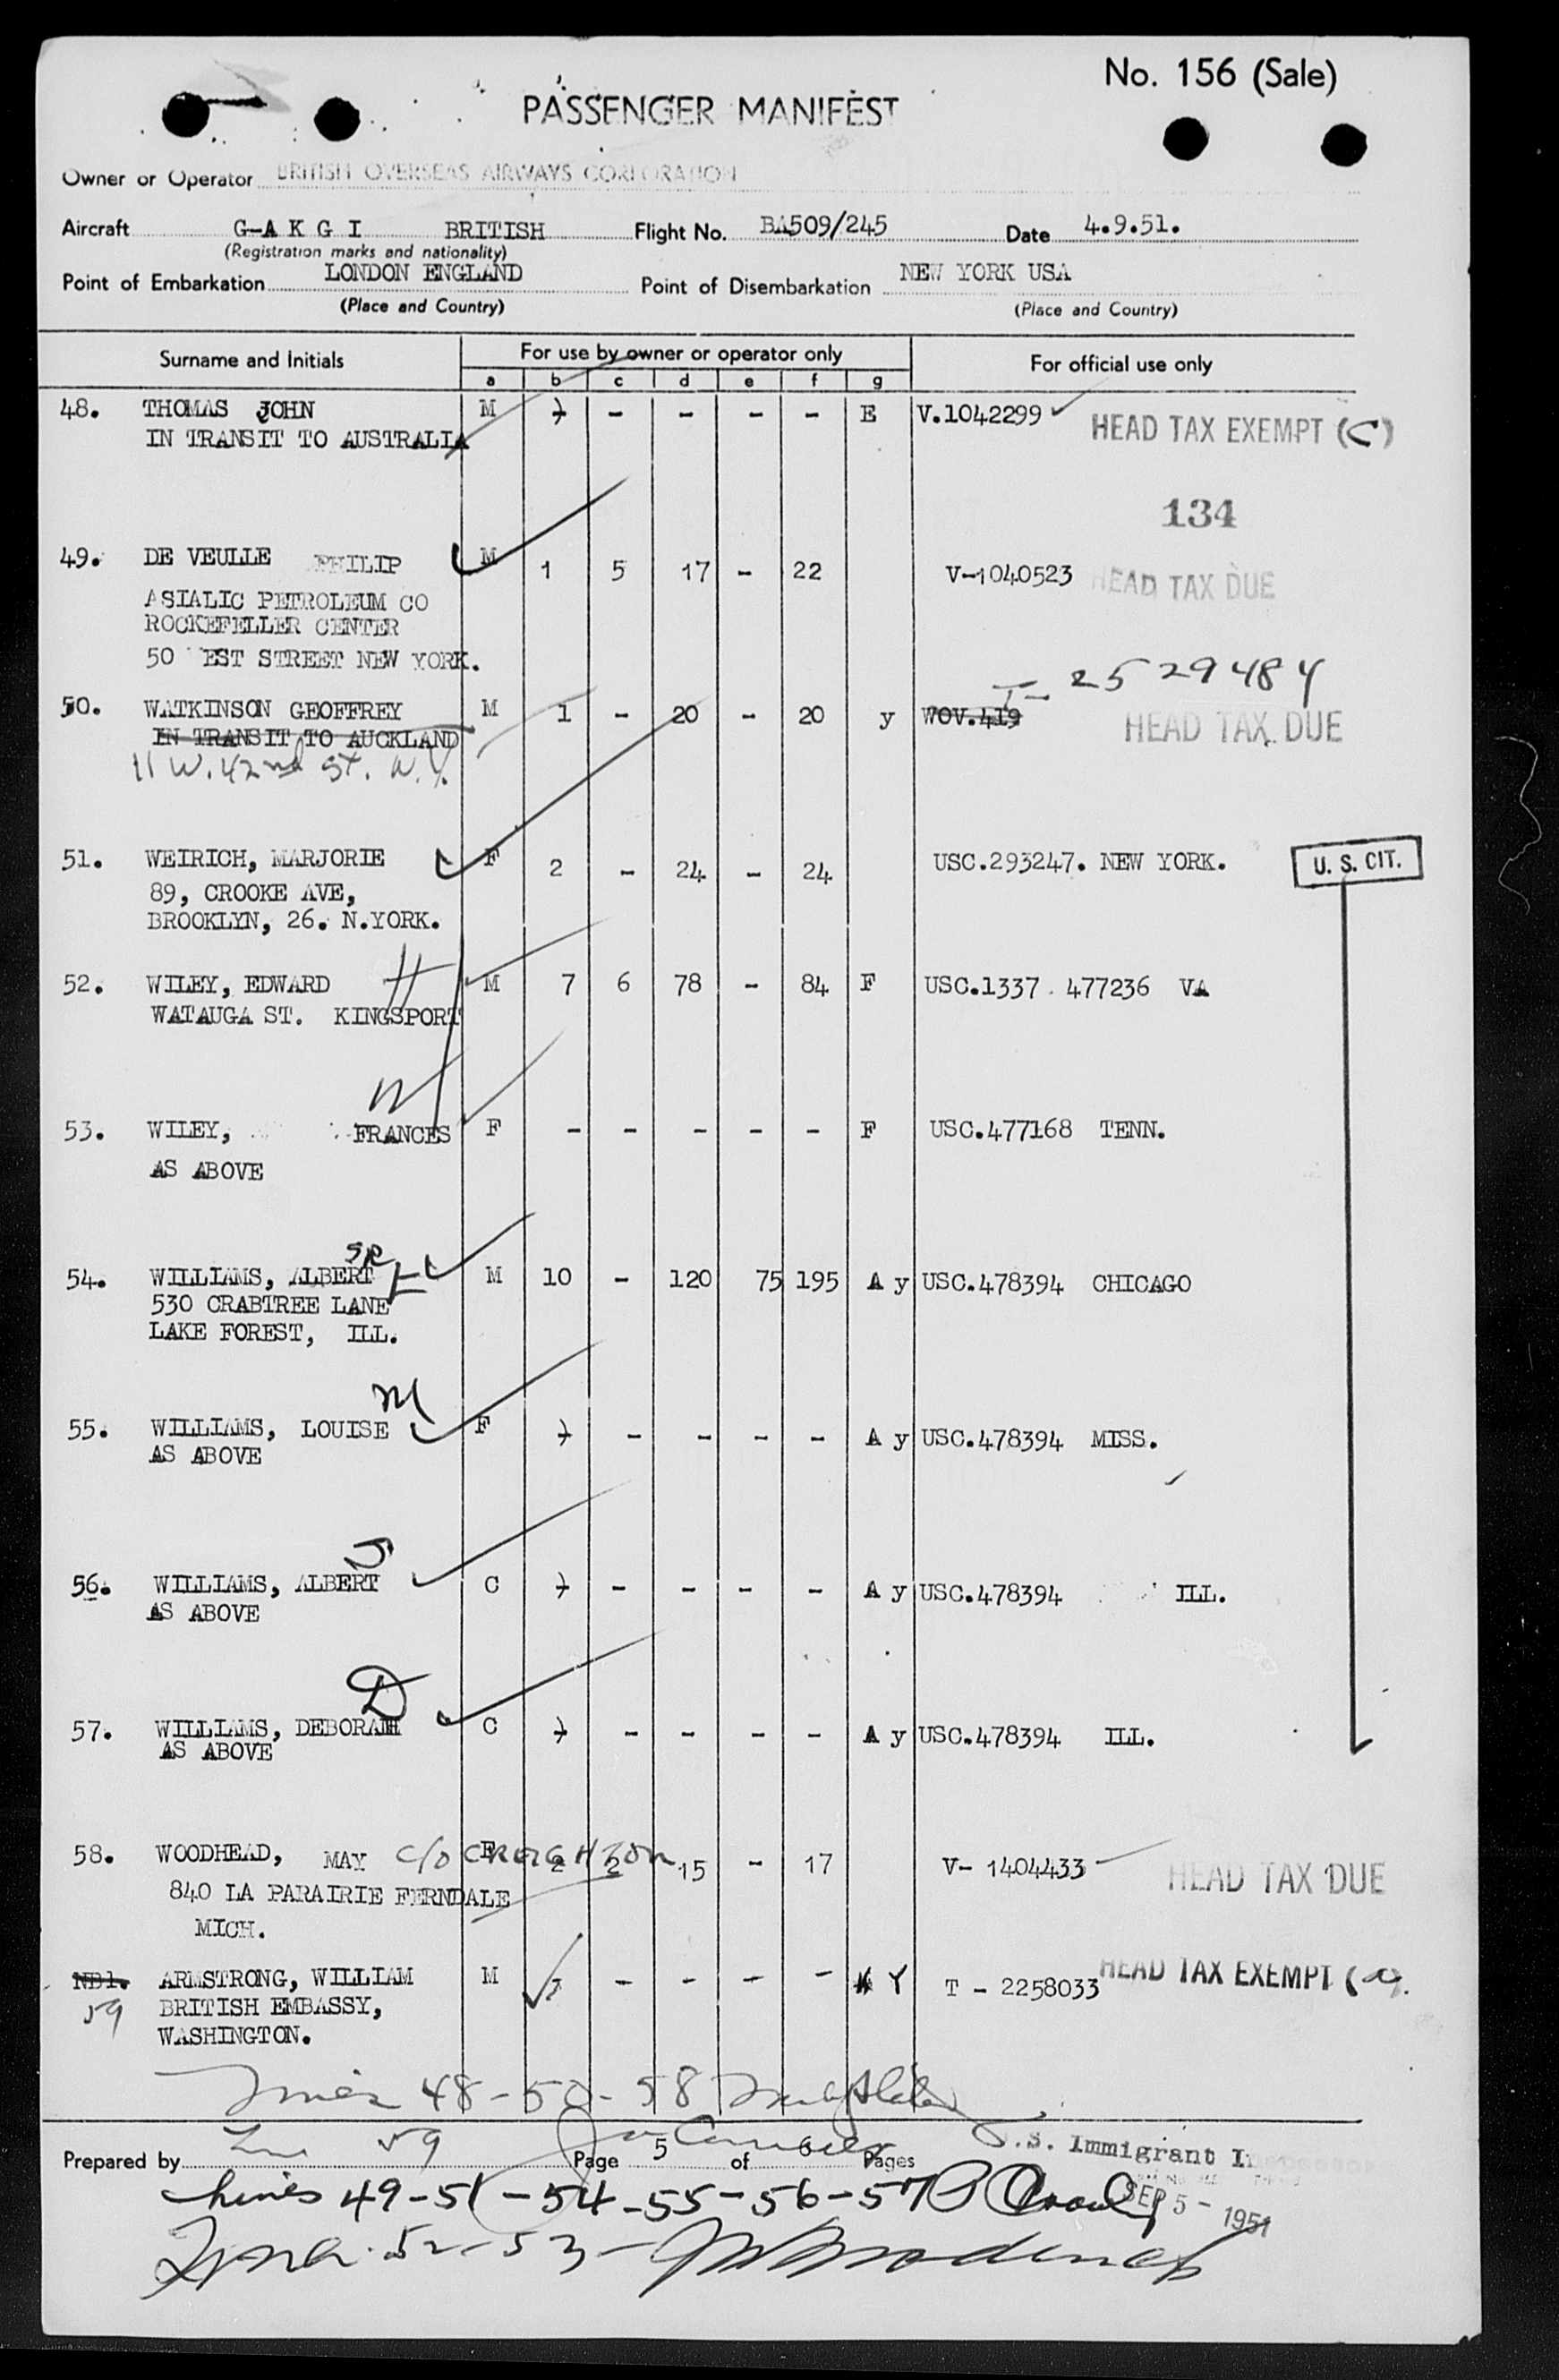 No. 156 (Sale)
PASSENGER MANIFEST
Owner or Operator BRITISH OVERSEAS AIRWAYS CORPORATION
Aircraft G-A K G I BRITISH Flight No. BA509/245 Date 4.9.51.
(Registration marks and nationality)
Point of Embarkation LONDON ENGLAND Point of Disembarkation NEW YORK USA
(Place and Country) (Place and Country)
Surname and Initials For use by owner or operator only For official use only
a b c d e f g
48. THOMAS JOHN M ) - - - - E V.1042299 HEAD TAX EXEMPT (C)
IN TRANSIT TO AUSTRALIA
134
49. DE VEULLE PHILIP M 1 5 17 - 22 V-1040523 HEAD TAX DUE
ASIALIC PETROLEUM CO
ROCKEFELLER CENTER
50 EST STREET NEW YORK.
T- 2529484
50. WATKINSON GEOFFREY M 1 - 20 - 20 y WOV.419 HEAD TAX DUE
IN TRANSIT TO AUCKLAND
11 W. 42nd St. N.Y.
51. WEIRICH, MARJORIE F 2 - 24 - 24 USC.293247. NEW YORK. U. S. CIT.
89, CROOKE AVE,
BROOKLYN, 26. N.YORK.
52. WILEY, EDWARD H M 7 6 78 - 84 F USC.1337 477236 VA
WATAUGA ST. KINGSPORT
W
53. WILEY, FRANCES F - - - - - F USC.477168 TENN.
AS ABOVE
SR
54. WILLIAMS, ALBERT E M 10 - 120 75 195 A y USC.478394 CHICAGO
530 CRABTREE LANE
LAKE FOREST, ILL.
M
55. WILLIAMS, LOUISE F ) - - - - A y USC.478394 MISS.
AS ABOVE
J
56. WILLIAMS, ALBERT C ) - - - - A y USC.478394 ILL.
AS ABOVE
D
57. WILLIAMS, DEBORAH C ) - - - - A y USC.478394 ILL.
AS ABOVE
58. WOODHEAD, MAY c/o CREIGHTON F 2 2 15 - 17 V- 1404433 HEAD TAX DUE
840 LA PARAIRIE FERNDALE
MICH.
NB1. ARMSTRONG, WILLIAM M - - - - Y T - 2258033 HEAD TAX EXEMPT
59 BRITISH EMBASSY,
WASHINGTON.
48 - 50 - 58
59
Prepared by Page 5 of 6 Pages U.S. Immigrant Inspector
Lines 49-51-54-55-56-57
SEP 5 - 1951
52-53-